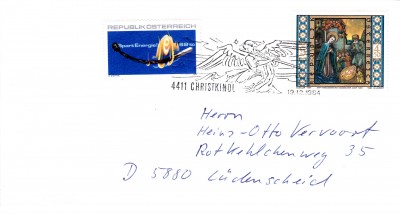 REPUBLIK ÖSTERREICH
4411 CHRISTKINDL
19.12.1984
Herrn
Heinz-Otto Vervoort
Rotkehlchenweg 35
D 5880 Lüdenscheid